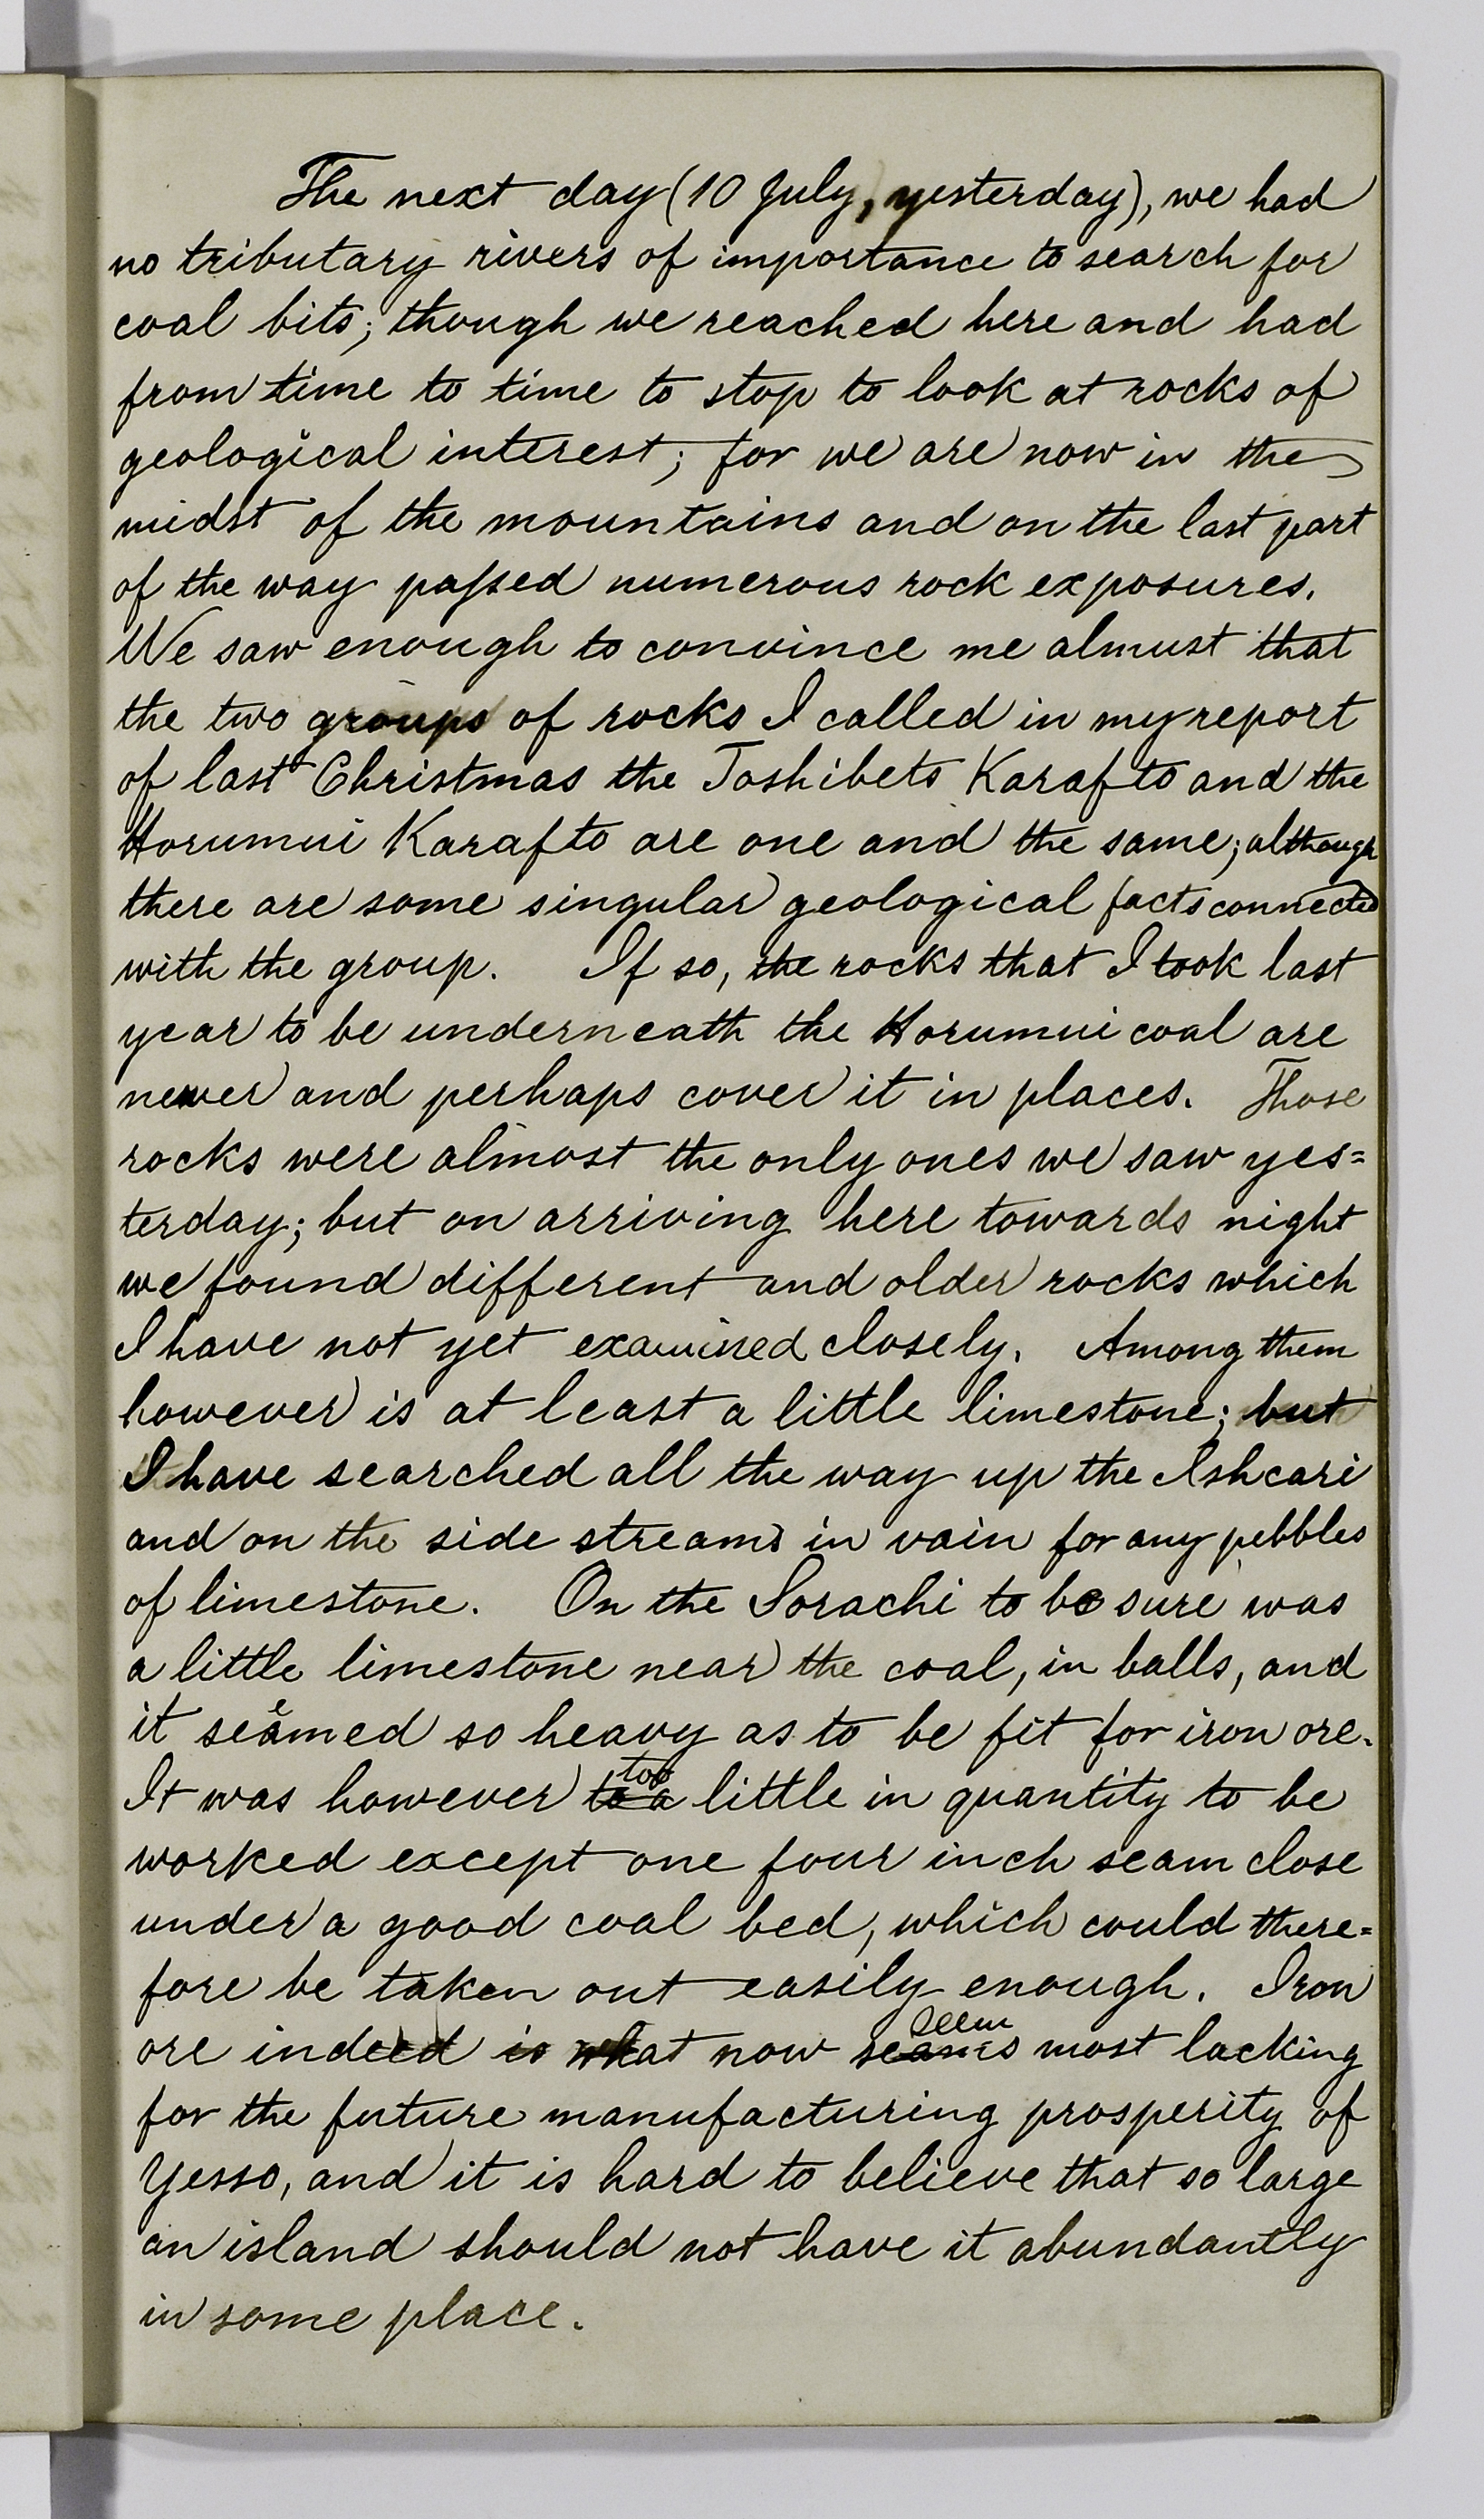 The next day (10 July, yesterday), we had
no tributary rivers of importance to search for
coal bits; though we reached here and had
from time to time to stop to look at rocks of
geological interest; for we are now in the
midst of the mountains and on the last part
of the way passed numerous rock exposures.
We saw enough to convince me almust that
the two groups of rocks I called in my report
of last Christmas the Toshibets Karafto and the
Horumui Karafto are one and the same; although
there are some singular geological facts connected
with the group. If so, the rocks that I took last
year to be underneath the Horumui coal are
newer and perhaps cover it in places. Those
rocks were almost the only ones we saw yes=
terday; but on arriving here towards night
we found different and older rocks which
I have not yet examined closely. Among them
however is at least a little limestone; but
I have searched all the way up the Ishcari
and on the side streams in vain for any pebbles
of limestone. On the Sorachi to be sure was
a little limestone near the coal, in balls, and
it seemed so heavy as to be fit for iron ore.
It was however too little in quantity to be
worked except one four inch seam close
under a good coal bed, which could there=
fore be taken out easily enough. Iron
ore indeed is what now seems most lacking
for the future manufacturing prosperity of
Yesso, and it is hard to believe that so large
an island should not have it abundantly
in some place.